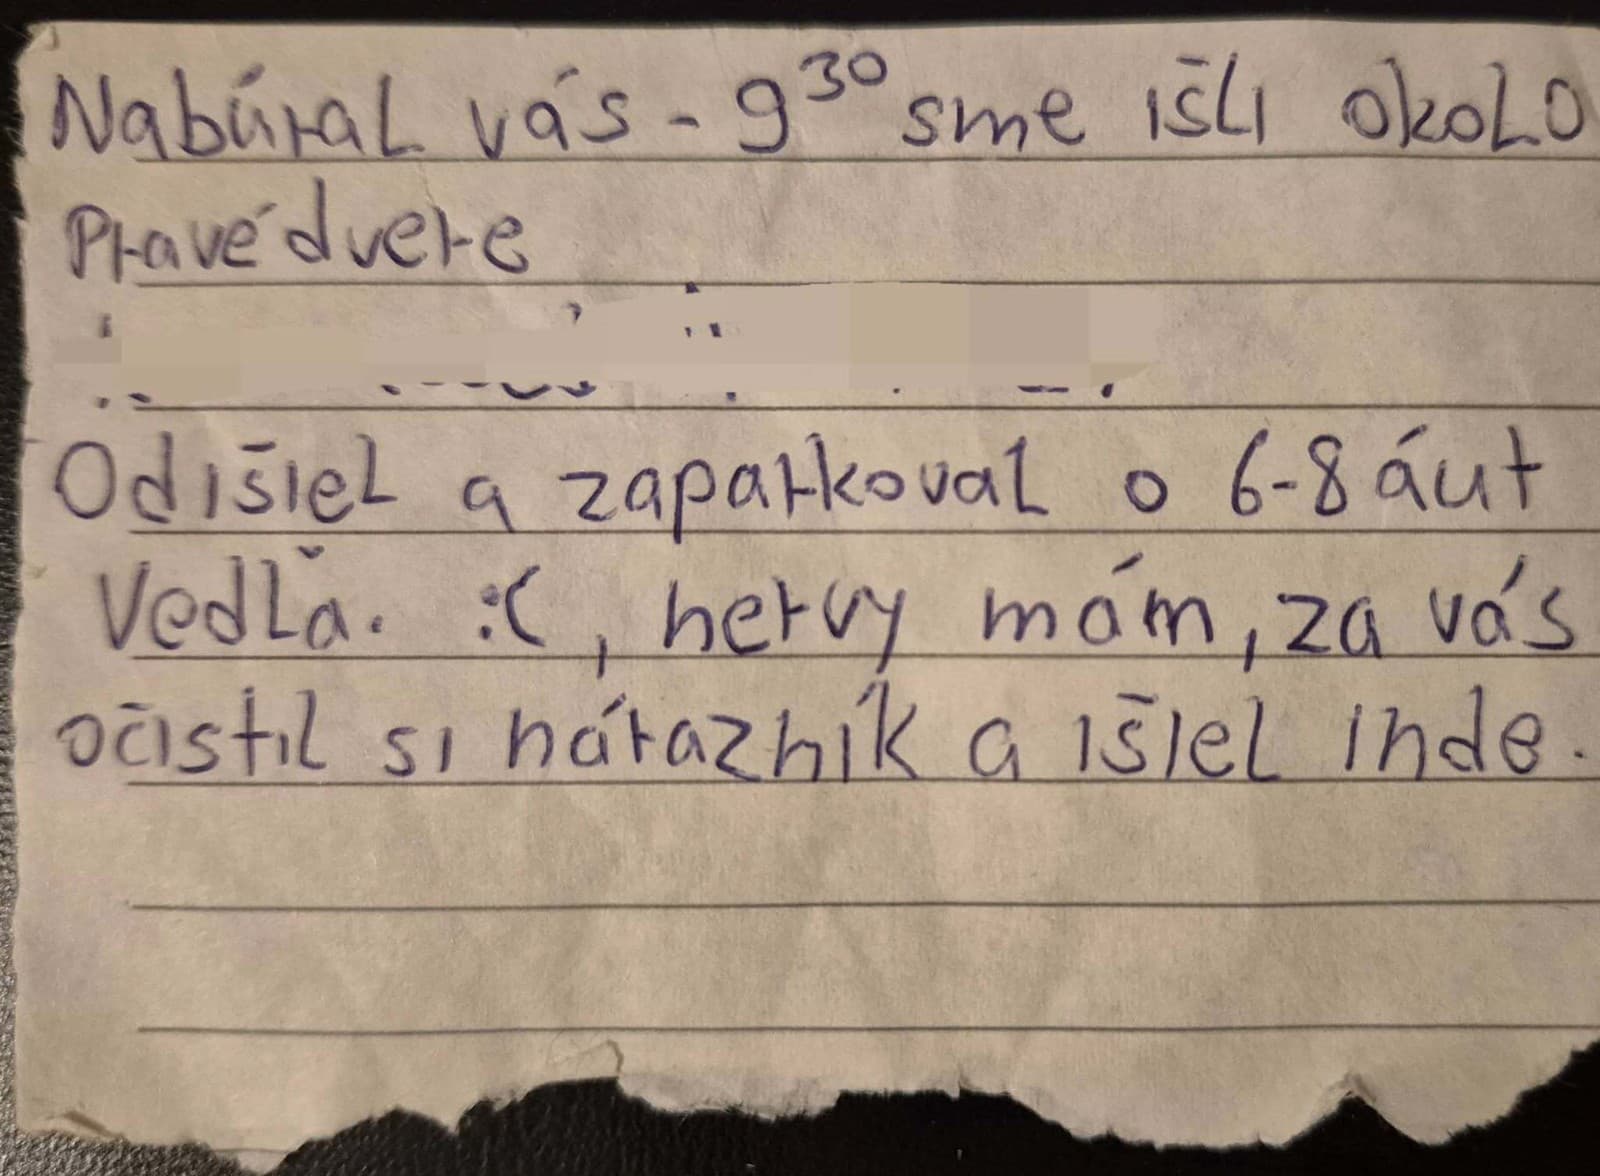 Nabúral vás - 9³⁰ sme išli okolo
Pravé dvere
Odišiel a zaparkoval o 6-8 áut
Vedľa. :(, nervy mám, za vás
očistil si nárazník a išiel inde.